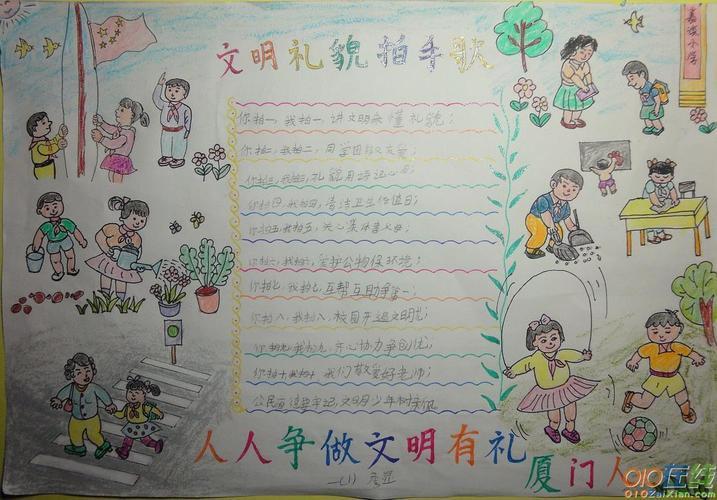 文明礼貌拍手歌
嘉滨小学
你拍一,我拍一,讲文明来懂礼貌;
你拍二,我拍二,同学团结又友爱;
你拍三,我拍三,礼貌用语记心
你拍四,我拍四,清洁卫生值日;
你拍五,我拍五,关心集体
你拍六,我拍六,爱护公物保环境;
你拍七,我拍七,互帮互助争第一;
你拍八,我拍八,校园开遍文明花;
你拍九,我拍九,齐心协力争创优;
你拍十,我拍十,我们敬爱好老师;
公民道德要牢记,文明少年树
人人争做文明有礼
厦门人
一(1)
010在线
010ZaiXian.com